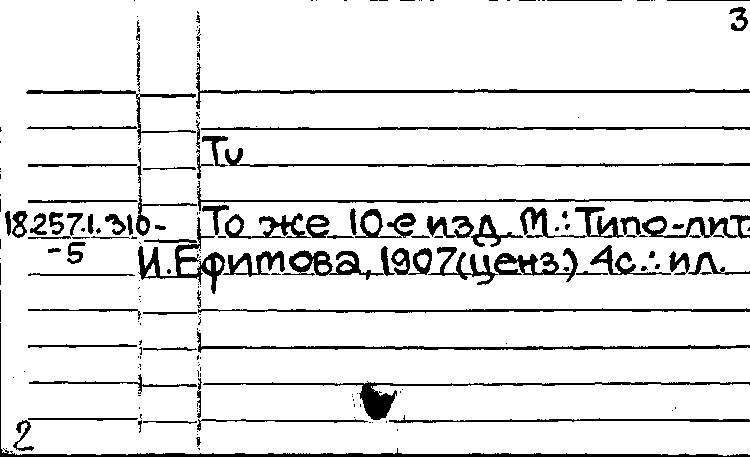 3
Ти
18.257.1.310- То же 10-е изд. М.: Типо-лит.
-5 И. Ефимова, 1907(ценз.) 4с.: ил.
2